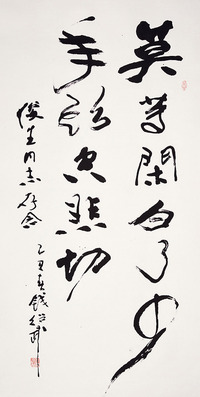 莫等閑白了少
年頭空悲切
俊生同志存念
乙丑春錢紹武